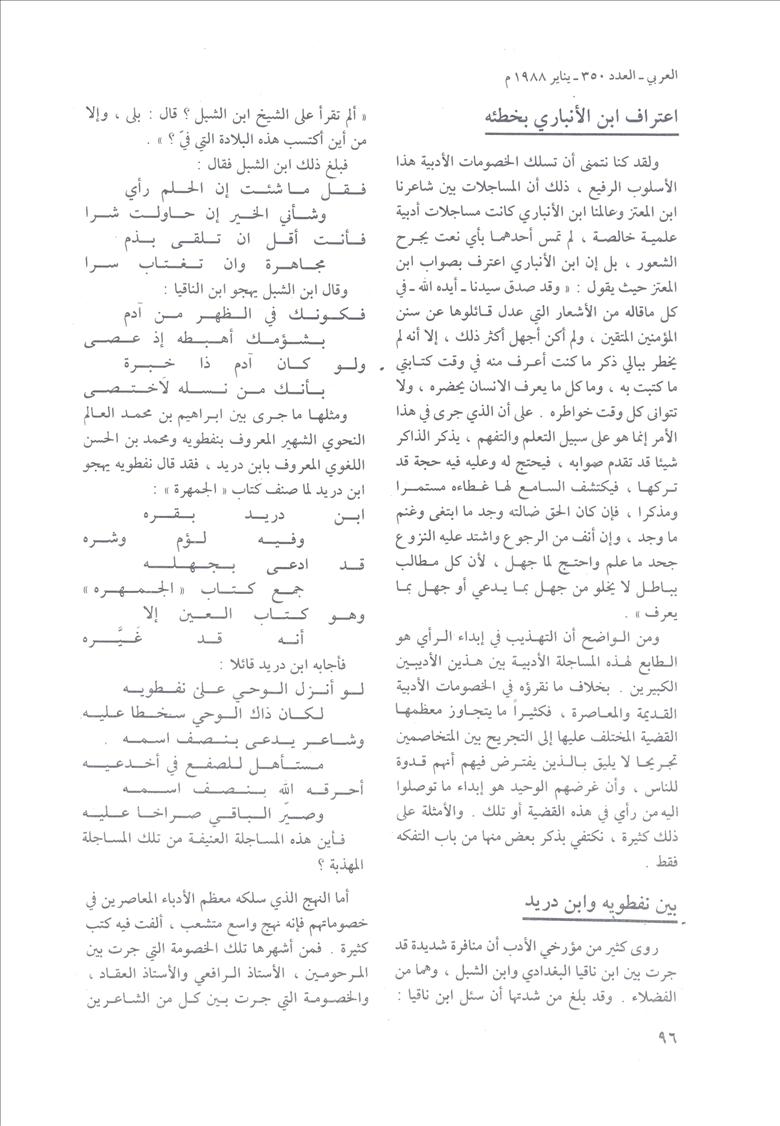 العربي ـ العدد ٣٥٠ ـ يناير ١٩٨٨ م
اعتراف ابن الأنباري بخطئه
ولقد كنا نتمنى أن تسلك الخصومات الأدبية هذا
الأسلوب الرفيع ، ذلك أن المساجلات بين شاعرنا
ابن المعتز وعالمنا ابن الأنباري كانت مساجلات أدبية
علمية خالصة ، لم تمس أحدهما بأي نعت يجرح
الشعور ، بل إن ابن الأنباري اعترف بصواب ابن
المعتز حيث يقول : « وقد صدق سيدنا ـ أيده الله ـ في
كل ماقاله من الأشعار التي عدل قائلوها عن سنن
المؤمنين المتقين ، ولم أكن أجهل أكثر ذلك ، إلا أنه لم
يخطر ببالي ذكر ما كنت أعرف منه في وقت كتابتي
ما كتبت به ، وما كل ما يعرف الانسان يحضره ، ولا
تتوانى كل وقت خواطره . على أن الذي جرى في هذا
الأمر إنما هو على سبيل التعلم والتفهم ، يذكر الذاكر
شيئا قد تقدم صوابه ، فيحتج له وعليه فيه حجة قد
تركها ، فيكتشف السامع لها غطاءه مستمرا
ومذكرا ، فإن كان الحق ضالته وجد ما ابتغى وغنم
ما وجد ، وإن أنف من الرجوع واشتد عليه النزوع
جحد ما علم واحتج لما جهل ، لأن كل مطالب
بباطل لا يخلو من جهل بما يدعي أو جهل بما
يعرف » .
ومن الواضح أن التهذيب في إبداء الرأي هو
الطابع لهذه المساجلة الأدبية بين هذين الأديبين
الكبيرين . بخلاف ما نقرؤه في الخصومات الأدبية
القديمة والمعاصرة ، فكثيراً ما يتجاوز معظمها
القضية المختلف عليها إلى التجريح بين المتخاصمين
تجريحا لا يليق بالذين يفترض فيهم أنهم قدوة
للناس ، وأن غرضهم الوحيد هو إبداء ما توصلوا
اليه من رأي في هذه القضية أو تلك . والأمثلة على
ذلك كثيرة ، نكتفي بذكر بعض منها من باب التفكه
فقط .
بين نفطويه وابن دريد
روى كثير من مؤرخي الأدب أن منافرة شديدة قد
جرت بين ابن ناقيا البغدادي وابن الشبل ، وهما من
الفضلاء . وقد بلغ من شدتها أن سئل ابن ناقيا :
« ألم تقرأ على الشيخ ابن الشبل ؟ قال : بلى ، وإلا
من أين أكتسب هذه البلادة التي فيّ ؟ » .
فبلغ ذلك ابن الشبل فقال :
فقل ما شئت إن الحلم رأي
وشأني الخير إن حاولت شرا
فأنت أقل ان تلقى بذم
مجاهرة وان تغتاب سرا
وقال ابن الشبل يهجو ابن الناقيا :
فكونك في الظهر من آدم
بشؤمك أهبطه إذ عصى
ولو كان آدم ذا خبرة
بأنك من نسله لاختصى
ومثلها ما جرى بين ابراهيم بن محمد العالم
النحوي الشهير المعروف بنفطويه ومحمد بن الحسن
اللغوي المعروف بابن دريد ، فقد قال نفطويه يهجو
ابن دريد لما صنف كتاب « الجمهرة » :
ابن دريد بقره
وفيه لؤم وشره
قد ادعى بجهله
جمع كتاب « الجمهره »
وهو كتاب العين إلا
أنه قد غَيَّره
فأجابه ابن دريد قائلا :
لو أنزل الوحي على نفطويه
لكان ذاك الوحي سخطا عليه
وشاعر يدعى بنصف اسمه
مستأهل للصفع في أخدعيه
أحرقه الله بنصف اسمه
وصيّر الباقي صراخا عليه
فأين هذه المساجلة العنيفة من تلك المساجلة
المهذبة ؟
أما النهج الذي سلكه معظم الأدباء المعاصرين في
خصوماتهم فإنه نهج واسع متشعب ، ألفت فيه كتب
كثيرة . فمن أشهرها تلك الخصومة التي جرت بين
المرحومين ، الأستاذ الرافعي والأستاذ العقاد ،
والخصومة التي جرت بين كل من الشاعرين
٩٦